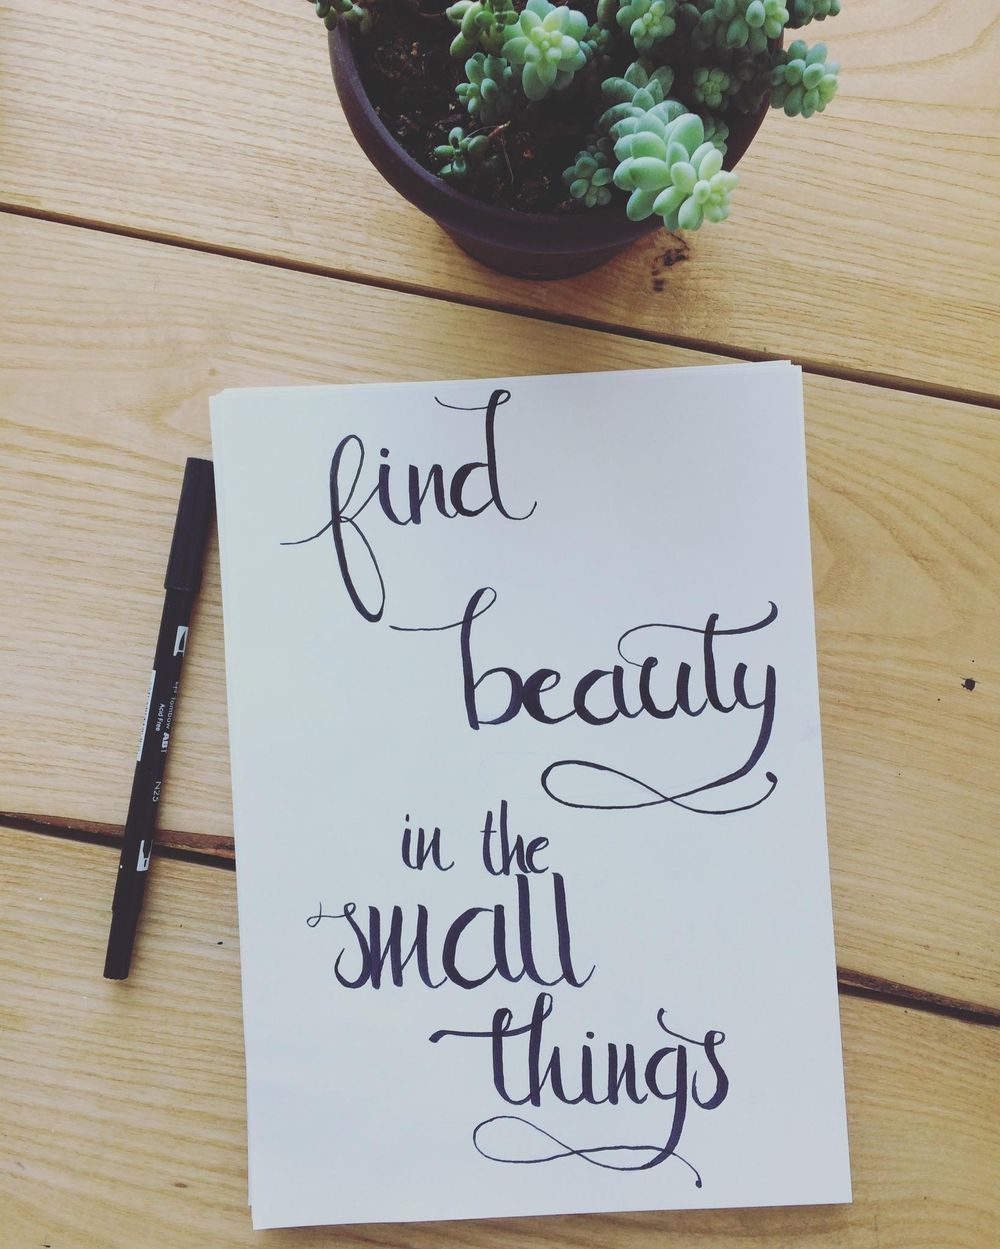 find
beauty
in the
small
things
Tombow ABT
Acid Free
N25